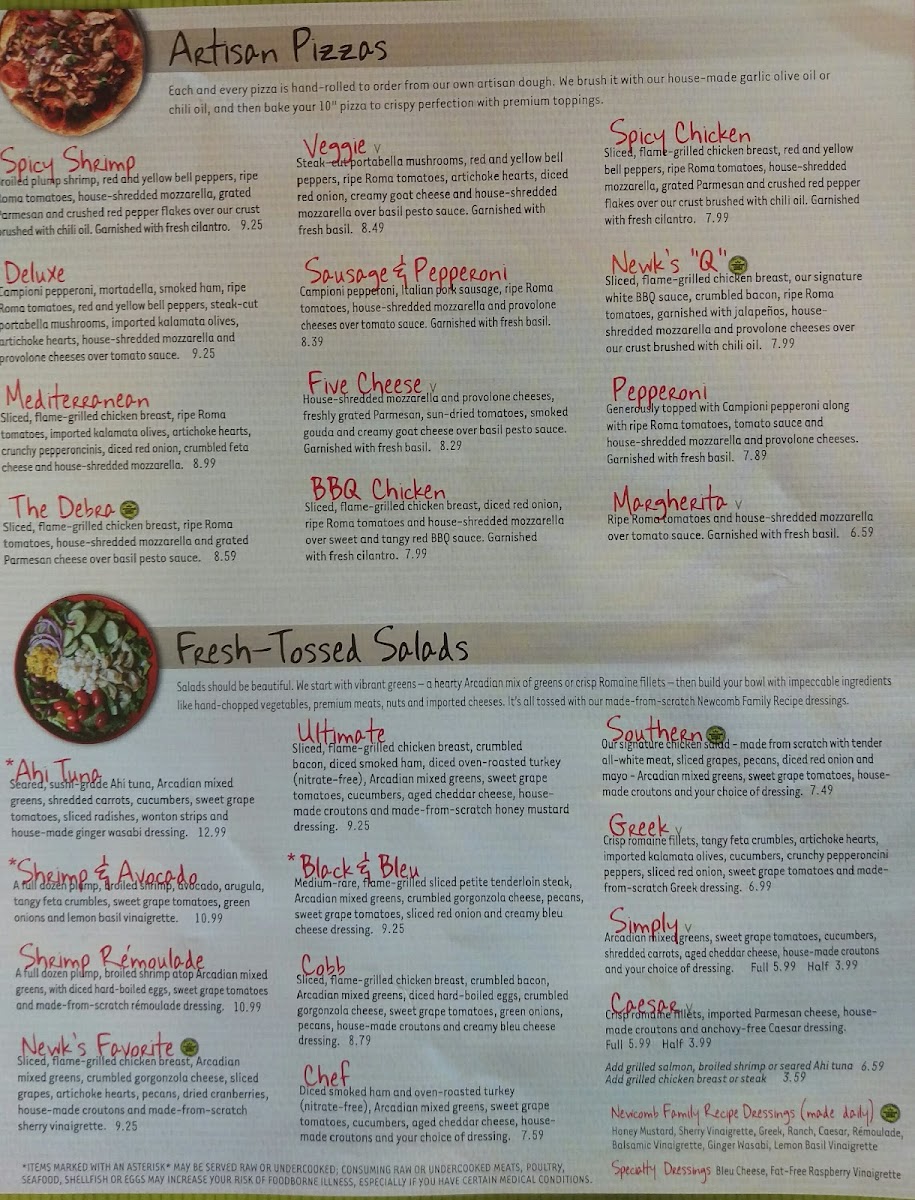 Artisan Pizzas
Each and every pizza is hand-rolled to order from our own artisan dough. We brush it with our house-made garlic olive oil or
chili oil, and then bake your 10" pizza to crispy perfection with premium toppings.
Spicy Shrimp
roiled plump shrimp, red and yellow bell peppers, ripe
Roma tomatoes, house-shredded mozzarella, grated
Parmesan and crushed red pepper flakes over our crust
brushed with chili oil. Garnished with fresh cilantro. 9.25
Deluxe
Campioni pepperoni, mortadella, smoked ham, ripe
Roma tomatoes, red and yellow bell peppers, steak-cut
portabella mushrooms, imported kalamata olives,
artichoke hearts, house-shredded mozzarella and
provolone cheeses over tomato sauce. 9.25
Mediterranean
Sliced, flame-grilled chicken breast, ripe Roma
tomatoes, imported kalamata olives, artichoke hearts,
crunchy pepperoncinis, diced red onion, crumbled feta
cheese and house-shredded mozzarella. 8.99
The Debra
Sliced, flame-grilled chicken breast, ripe Roma
tomatoes, house-shredded mozzarella and grated
Parmesan cheese over basil pesto sauce. 8.59
Veggie V
Steak-cut portabella mushrooms, red and yellow bell
peppers, ripe Roma tomatoes, artichoke hearts, diced
red onion, creamy goat cheese and house-shredded
mozzarella over basil pesto sauce. Garnished with
fresh basil. 8.49
Sausage & Pepperoni
Campioni pepperoni, Italian pork sausage, ripe Roma
tomatoes, house-shredded mozzarella and provolone
cheeses over tomato sauce. Garnished with fresh basil.
8.39
Five Cheese V
House-shredded mozzarella and provolone cheeses,
freshly grated Parmesan, sun-dried tomatoes, smoked
gouda and creamy goat cheese over basil pesto sauce.
Garnished with fresh basil. 8.29
BBQ Chicken
Sliced, flame-grilled chicken breast, diced red onion,
ripe Roma tomatoes and house-shredded mozzarella
over sweet and tangy red BBQ sauce. Garnished
with fresh cilantro. 7.99
Spicy Chicken
Sliced, flame-grilled chicken breast, red and yellow
bell peppers, ripe Roma tomatoes, house-shredded
mozzarella, grated Parmesan and crushed red pepper
flakes over our crust brushed with chili oil. Garnished
with fresh cilantro. 7.99
Newk's "Q"
Sliced, flame-grilled chicken breast, our signature
white BBQ sauce, crumbled bacon, ripe Roma
tomatoes, garnished with jalapeños, house-
shredded mozzarella and provolone cheeses over
our crust brushed with chili oil. 7.99
Pepperoni
Generously topped with Campioni pepperoni along
with ripe Roma tomatoes, tomato sauce and
house-shredded mozzarella and provolone cheeses.
Garnished with fresh basil. 7.89
Margherita V
Ripe Roma tomatoes and house-shredded mozzarella
over tomato sauce. Garnished with fresh basil. 6.59
Fresh-Tossed Salads
Salads should be beautiful. We start with vibrant greens – a hearty Arcadian mix of greens or crisp Romaine fillets – then build your bowl with impeccable ingredients
like hand-chopped vegetables, premium meats, nuts and imported cheeses. It's all tossed with our made-from-scratch Newcomb Family Recipe dressings.
*Ahi Tuna
Seared, sushi-grade Ahi tuna, Arcadian mixed
greens, shredded carrots, cucumbers, sweet grape
tomatoes, sliced radishes, wonton strips and
house-made ginger wasabi dressing. 12.99
*Shrimp & Avocado
A full dozen plump, broiled shrimp, avocado, arugula,
tangy feta crumbles, sweet grape tomatoes, green
onions and lemon basil vinaigrette. 10.99
Shrimp Rémoulade
A full dozen plump, broiled shrimp atop Arcadian mixed
greens, with diced hard-boiled eggs, sweet grape tomatoes
and made-from-scratch rémoulade dressing. 10.99
Newk's Favorite
Sliced, flame-grilled chicken breast, Arcadian
mixed greens, crumbled gorgonzola cheese, sliced
grapes, artichoke hearts, pecans, dried cranberries,
house-made croutons and made-from-scratch
sherry vinaigrette. 9.25
Ultimate
Sliced, flame-grilled chicken breast, crumbled
bacon, diced smoked ham, diced oven-roasted turkey
(nitrate-free), Arcadian mixed greens, sweet grape
tomatoes, cucumbers, aged cheddar cheese, house-
made croutons and made-from-scratch honey mustard
dressing. 9.25
*Black & Bleu
Medium-rare, flame-grilled sliced petite tenderloin steak,
Arcadian mixed greens, crumbled gorgonzola cheese, pecans,
sweet grape tomatoes, sliced red onion and creamy bleu
cheese dressing. 9.25
Cobb
Sliced, flame-grilled chicken breast, crumbled bacon,
Arcadian mixed greens, diced hard-boiled eggs, crumbled
gorgonzola cheese, sweet grape tomatoes, green onions,
pecans, house-made croutons and creamy bleu cheese
dressing. 8.79
Chef
Diced smoked ham and oven-roasted turkey
(nitrate-free), Arcadian mixed greens, sweet grape
tomatoes, cucumbers, aged cheddar cheese, house-
made croutons and your choice of dressing. 7.59
Southern
Our signature chicken salad – made from scratch with tender
all-white meat, sliced grapes, pecans, diced red onion and
mayo – Arcadian mixed greens, sweet grape tomatoes, house-
made croutons and your choice of dressing. 7.49
Greek V
Crisp romaine fillets, tangy feta crumbles, artichoke hearts,
imported kalamata olives, cucumbers, crunchy pepperoncini
peppers, sliced red onion, sweet grape tomatoes and made-
from-scratch Greek dressing. 6.99
Simply V
Arcadian mixed greens, sweet grape tomatoes, cucumbers,
shredded carrots, aged cheddar cheese, house-made croutons
and your choice of dressing. Full 5.99 Half 3.99
Caesar V
Crisp romaine fillets, imported Parmesan cheese, house-
made croutons and anchovy-free Caesar dressing.
Full 5.99 Half 3.99
Add grilled salmon, broiled shrimp or seared Ahi tuna 6.59
Add grilled chicken breast or steak 3.59
Newcomb Family Recipe Dressings (made daily)
Honey Mustard, Sherry Vinaigrette, Greek, Ranch, Caesar, Rémoulade,
Balsamic Vinaigrette, Ginger Wasabi, Lemon Basil Vinaigrette
Specialty Dressings Bleu Cheese, Fat-Free Raspberry Vinaigrette
*ITEMS MARKED WITH AN ASTERISK* MAY BE SERVED RAW OR UNDERCOOKED; CONSUMING RAW OR UNDERCOOKED MEATS, POULTRY,
SEAFOOD, SHELLFISH OR EGGS MAY INCREASE YOUR RISK OF FOODBORNE ILLNESS, ESPECIALLY IF YOU HAVE CERTAIN MEDICAL CONDITIONS.